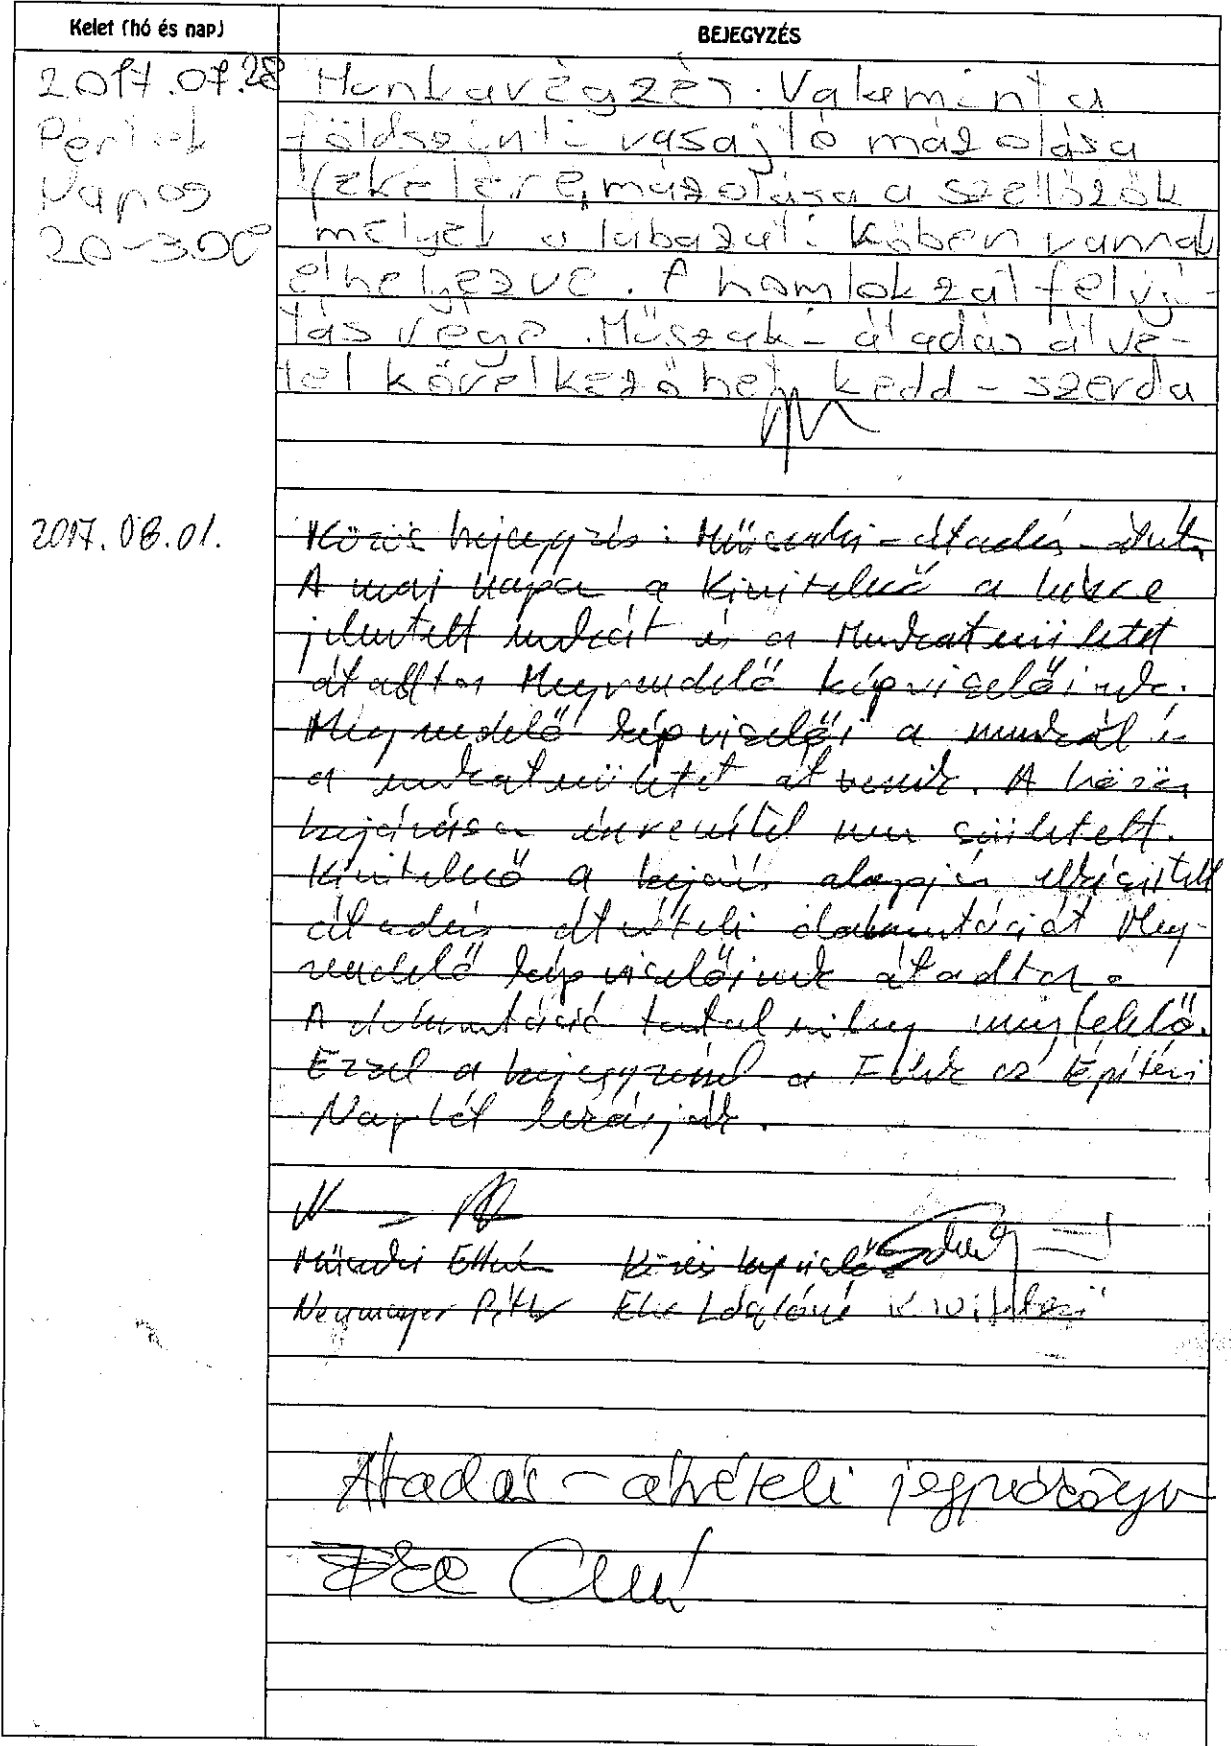 Kelet (hó és nap)
BEJEGYZÉS
2017.07.28 Munkavégzés. Valamint a
Péntek földszinti vasajtó mázolása
Napos feketére, mázolása a szellőzők
20-30C° melyek a lábazati kőben vannak
elhelyezve. A homlokzat felújí-
tás vége. Műszaki - átadás átvé-
tel következő hét kedd - szerda
2017.08.01. Közös bejegyzés: Műszaki - átadás - átvét.
A mai napon a Kivitelező a készre
jelentett munkát és a Munkaterületet
átadta Megrendelő képviselőinek.
Megrendelő képviselői a munkát és
a munkaterületet átveszik. A közös
bejáráson észrevétel nem született.
Kivitelező a bejárás alapján elkészített
átadás átvételi dokumentációját Meg-
rendelő képviselőinek átadta.
A dokumentáció tartalmilag megfelelő.
Ezzel a bejegyzéssel a Felek az Építési
Naplót lezárják.
Műszaki Ellenőr Közös képviselő
Neumayer Lászlóné Kivitelező
Átadás - átvételi jegyzőkönyv